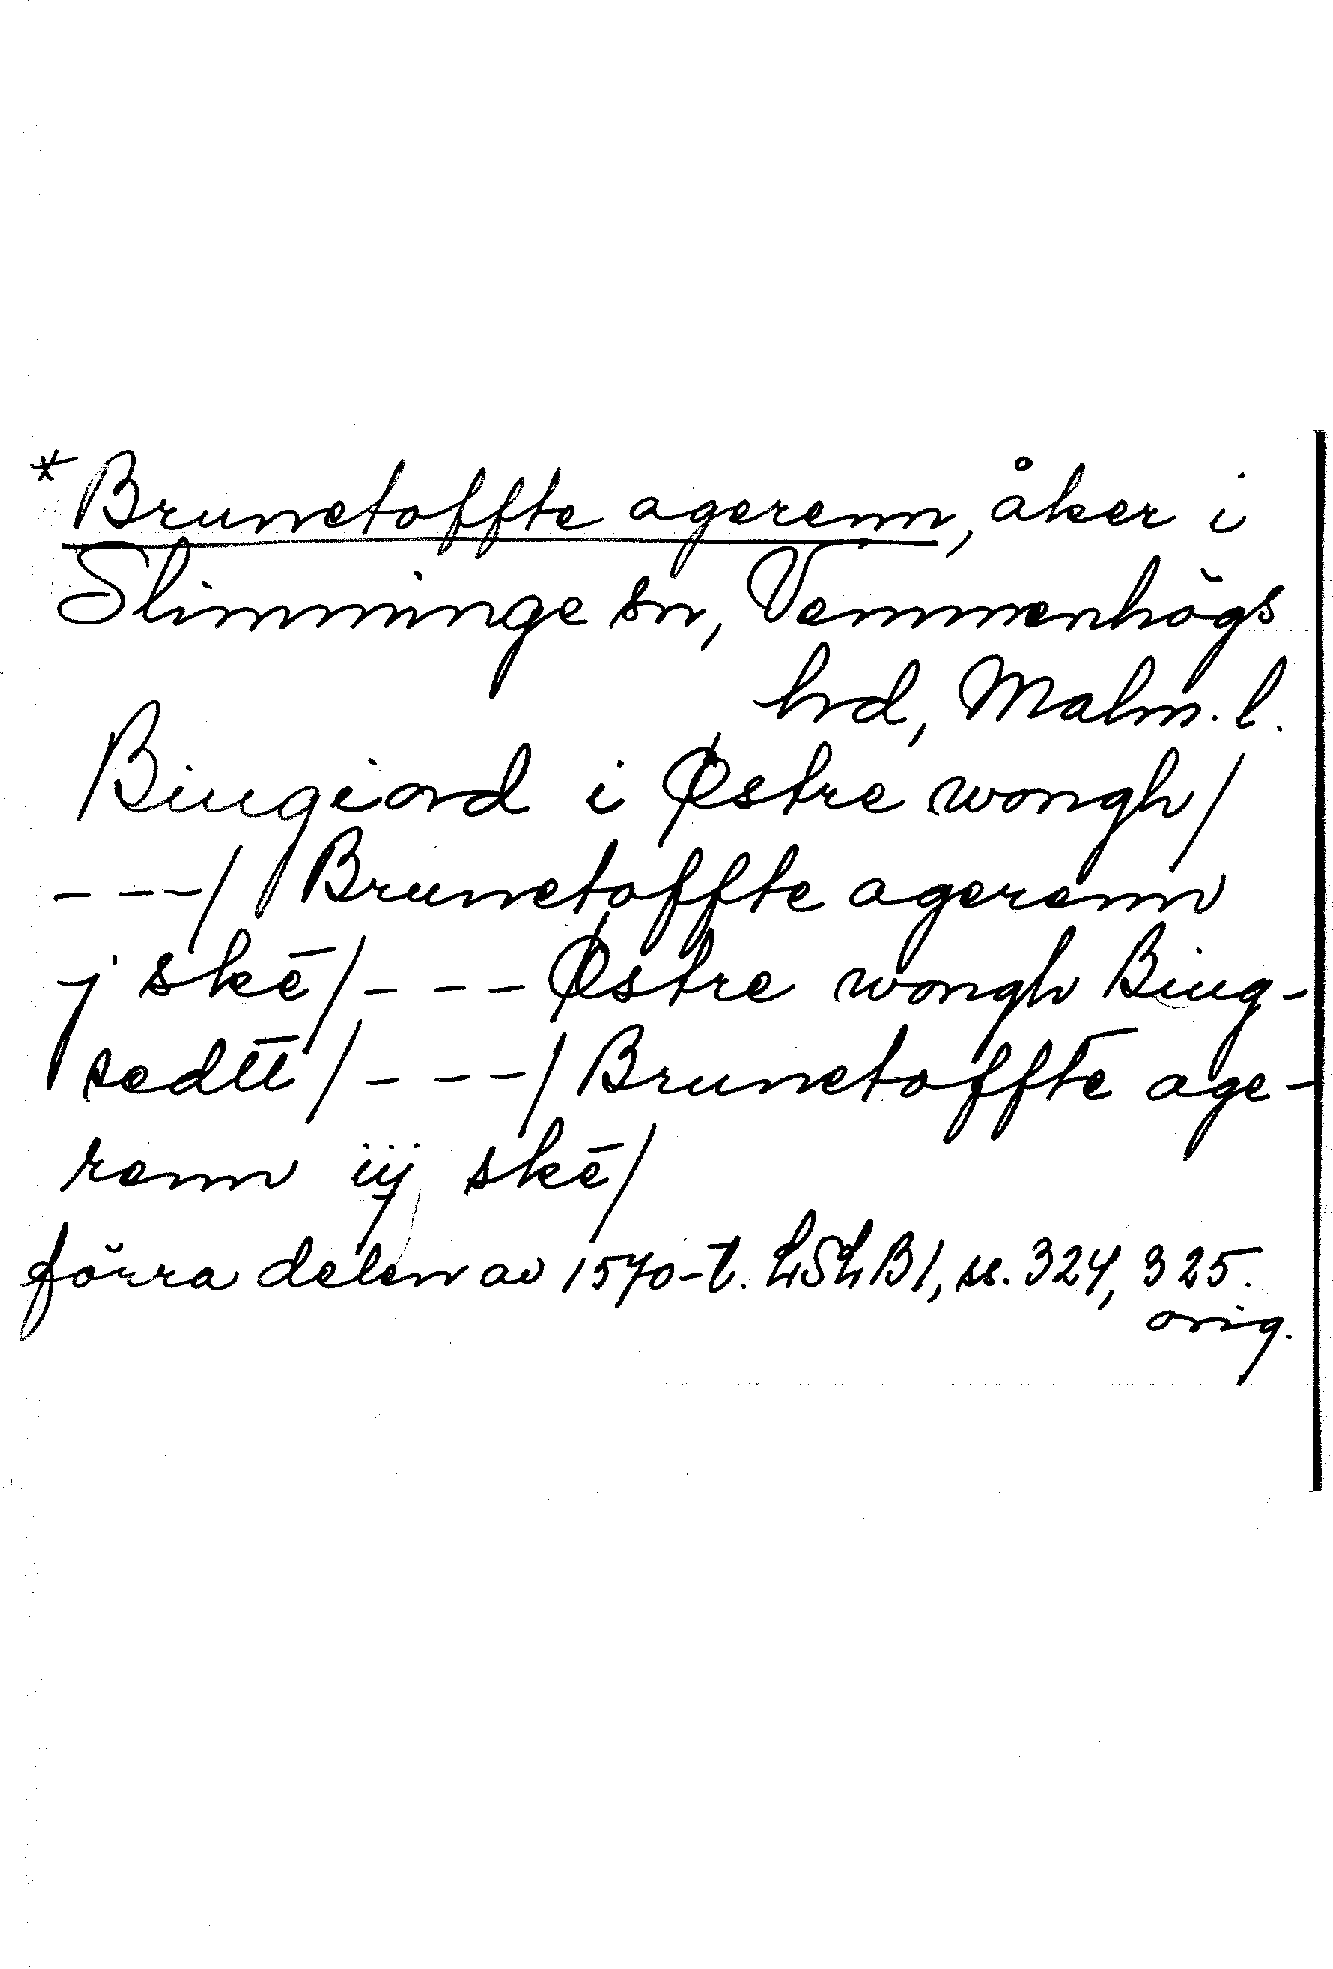 *Brunetoffte agerenn, åker i
Slimminge sn, Vemmenhögs
hd, Malm. l.
Biugiord i Østre wongh/
---/ Brunetoffte agerenn
j skē/--- Østre wongh Biug-
sedtt̄/---/Brunetoffte age-
renn iij skē/
förra delen av 1570-t. LSLB1, ss. 324, 325.
orig.